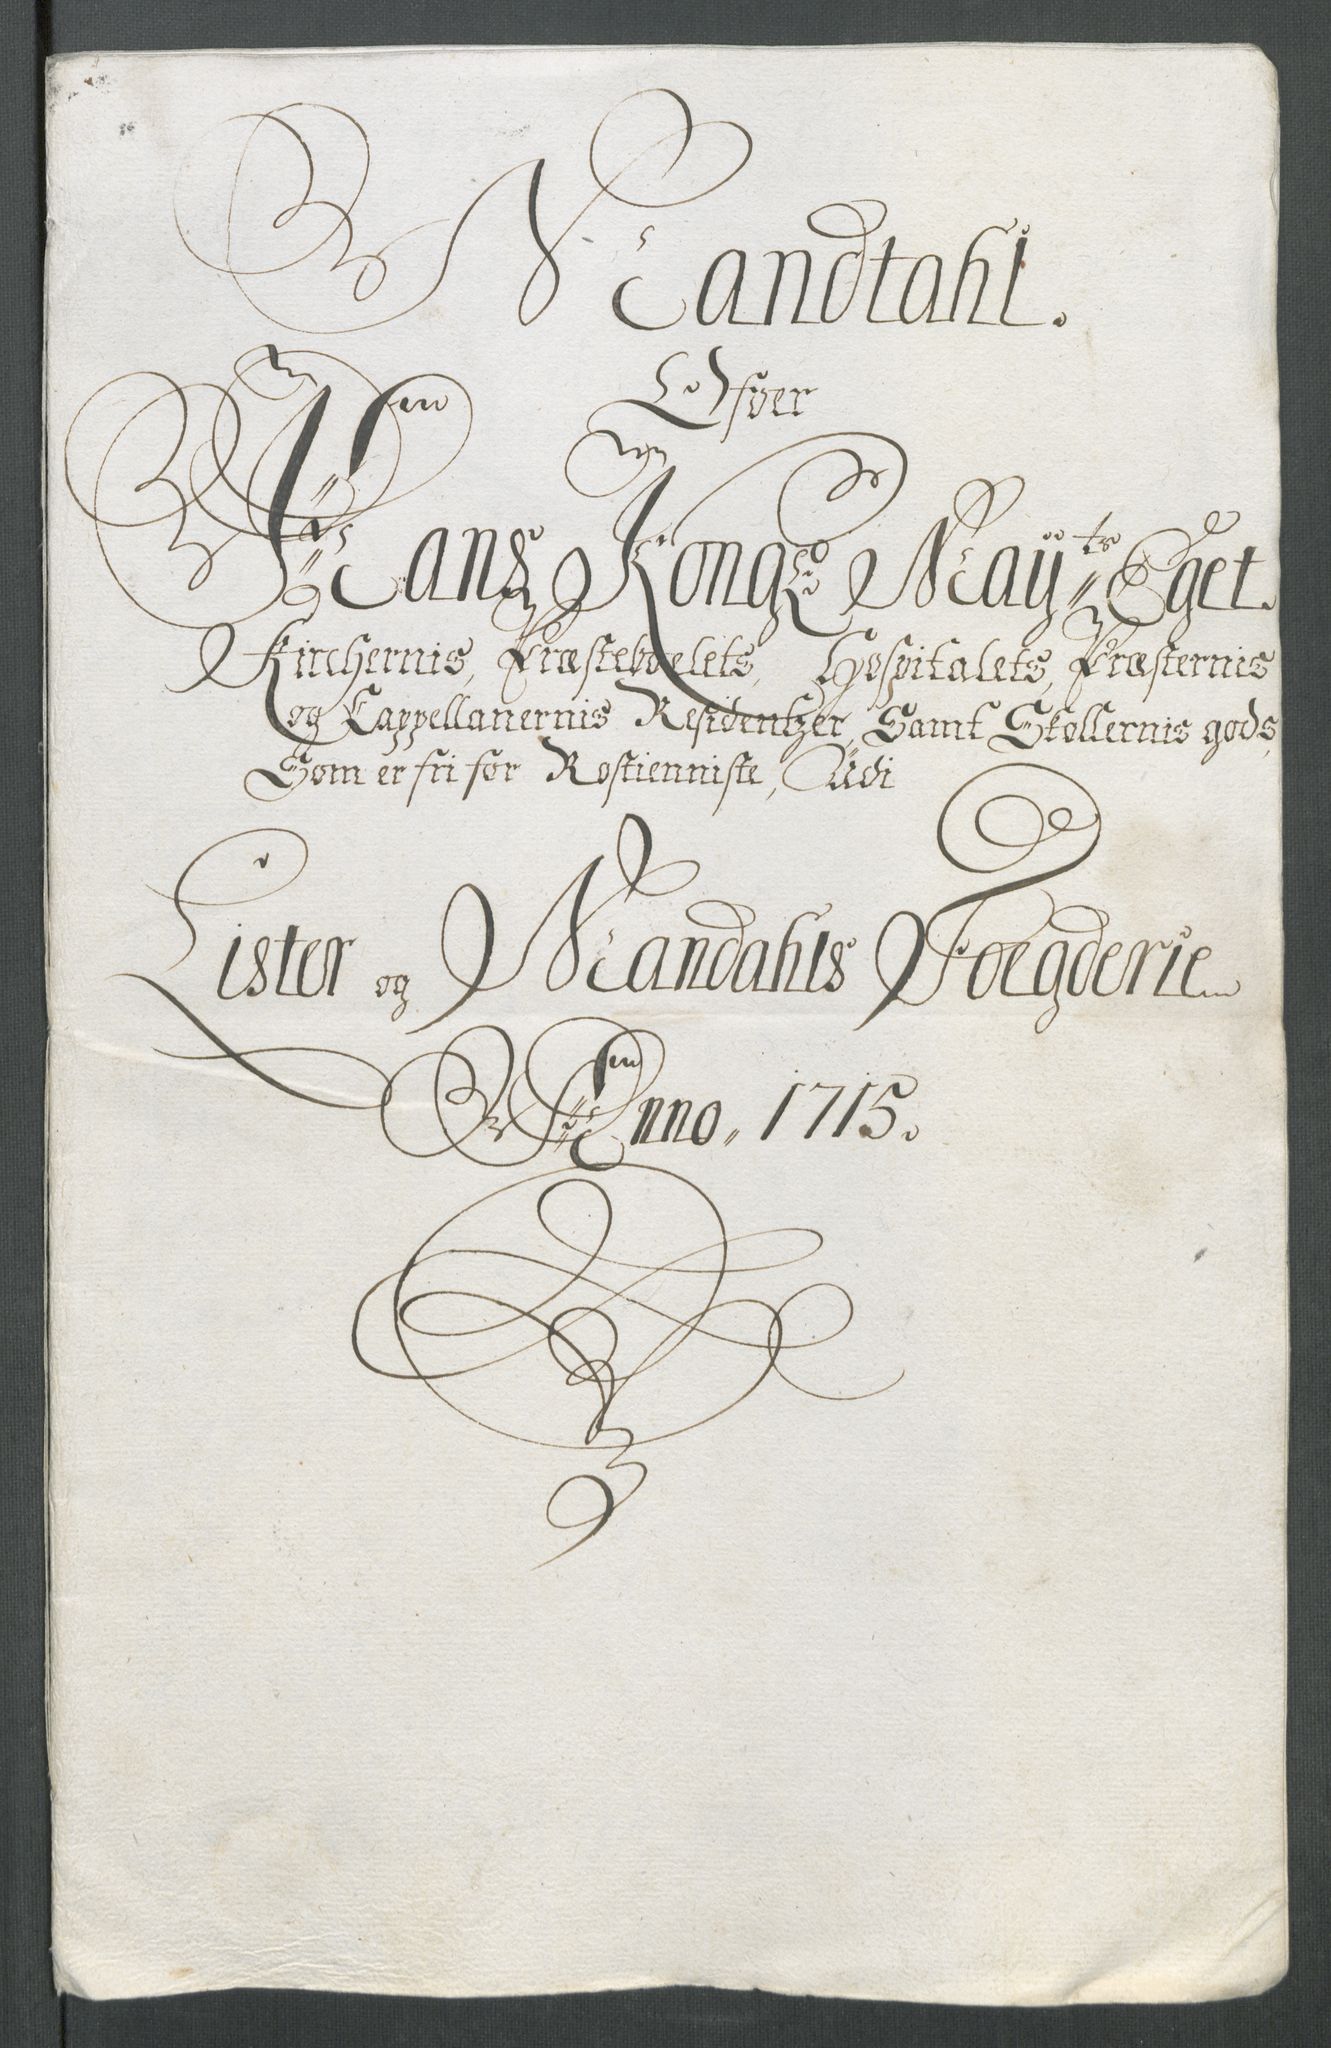 Mandtahl.
Ofver
Hans Kongl Mayts Eget.
Kirchernis, Præsteboelets, Hospitalets, Præsternis
og Cappellanernis Residentzer, Samt Skollernis gods,
Som er fri for Rostienniste, Udi
Lister og Mandahls Foegderie
Anno. 1715.